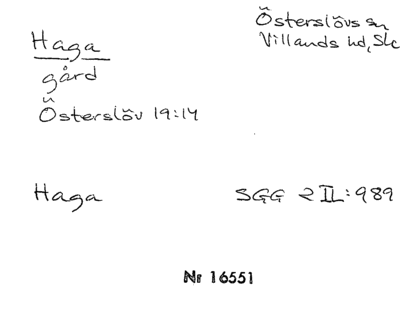 Haga
gård
Österslöv 19:14
Österslövs sn
Villands hd, Skå
Haga
SGG 2 II:989
Nr 16551